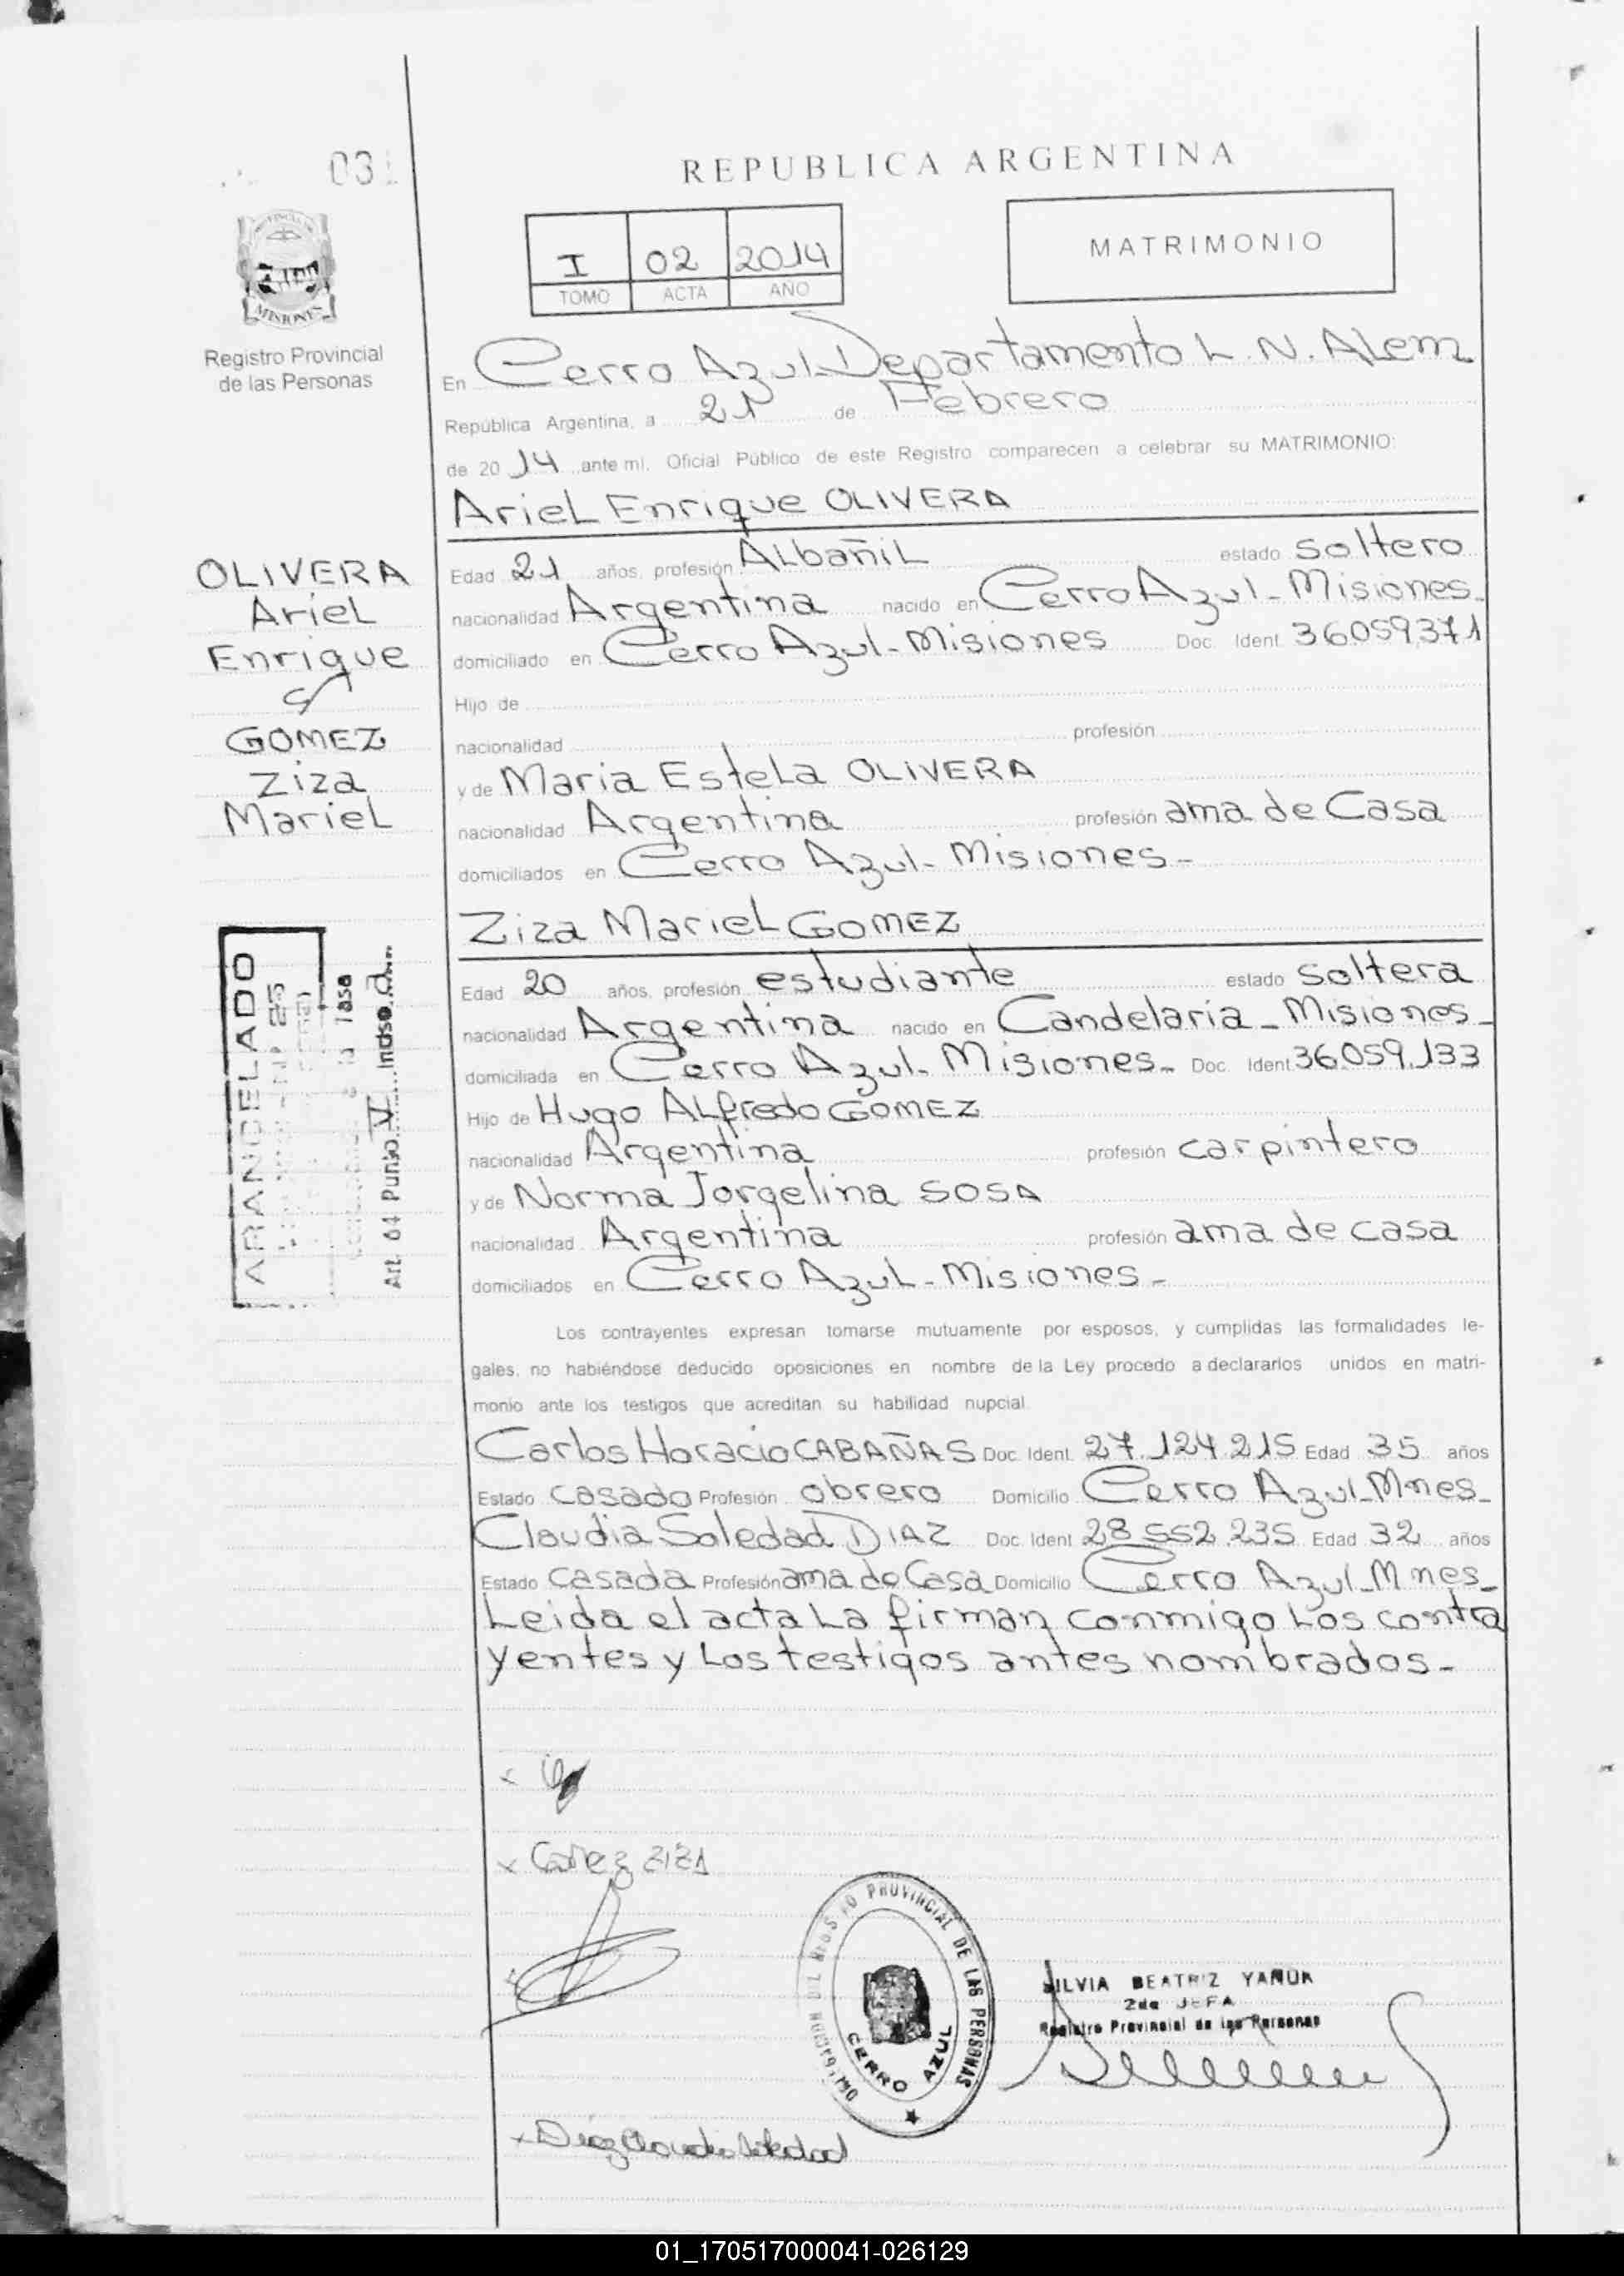 031
REPUBLICA ARGENTINA
I 02 2014
TOMO ACTA AÑO
MATRIMONIO
MISIONES
Registro Provincial
de las Personas
En Cerro Azul - Departamento L. N. Alem
República Argentina, a 21 de Febrero
de 2014 ante mí, Oficial Público de este Registro comparecen a celebrar su MATRIMONIO:
Ariel Enrique OLIVERA
OLIVERA
Ariel
Enrique
y
GOMEZ
Ziza
Mariel
Edad 21 años, profesión Albañil estado soltero
nacionalidad Argentina nacido en Cerro Azul - Misiones -
domiciliado en Cerro Azul - Misiones Doc. Ident. 36.059.371
Hijo de
nacionalidad profesión
y de Maria Estela OLIVERA
nacionalidad Argentina profesión ama de Casa
domiciliados en Cerro Azul - Misiones -
Ziza Mariel GOMEZ
Edad 20 años, profesión estudiante estado soltera
nacionalidad Argentina nacido en Candelaria - Misiones -
domiciliada en Cerro Azul - Misiones - Doc. Ident. 36.059.133
Hijo de Hugo Alfredo GOMEZ
nacionalidad Argentina profesión carpintero
y de Norma Jorgelina SOSA
nacionalidad Argentina profesión ama de casa
domiciliados en Cerro Azul - Misiones -
ARANCELADO
la Tasa
Art. 64 Punto V Inciso a
Los contrayentes expresan tomarse mutuamente por esposos, y cumplidas las formalidades le-
gales, no habiéndose deducido oposiciones en nombre de la Ley procedo a declararlos unidos en matri-
monio ante los testigos que acreditan su habilidad nupcial
Carlos Horacio CABAÑAS Doc. Ident. 27.124.215 Edad 35 años
Estado casado Profesión obrero Domicilio Cerro Azul - Mnes -
Claudia Soledad DIAZ Doc. Ident. 28.552.235 Edad 32 años
Estado casada Profesión ama de Casa Domicilio Cerro Azul - Mnes -
Leida el acta la firman conmigo los contra
yentes y los testigos antes nombrados -
PROVINCIAL DE LAS PERSONAS
CERRO AZUL
SILVIA BEATRIZ YANUK
2da JEFA
Registro Provincial de las Personas
Diaz Claudia Soledad
01_170517000041-026129